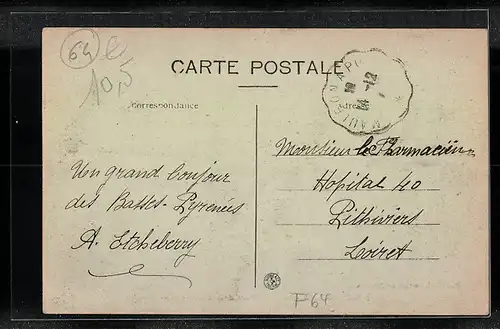 64
10,5
CARTE POSTALE
Correspondance
Adresse
Monsieur le Pharmacien
Hopital 40
Pithiviers
Loiret
Un grand bonjour
des Basses-Pyrénées
A. Etcheberry
F64